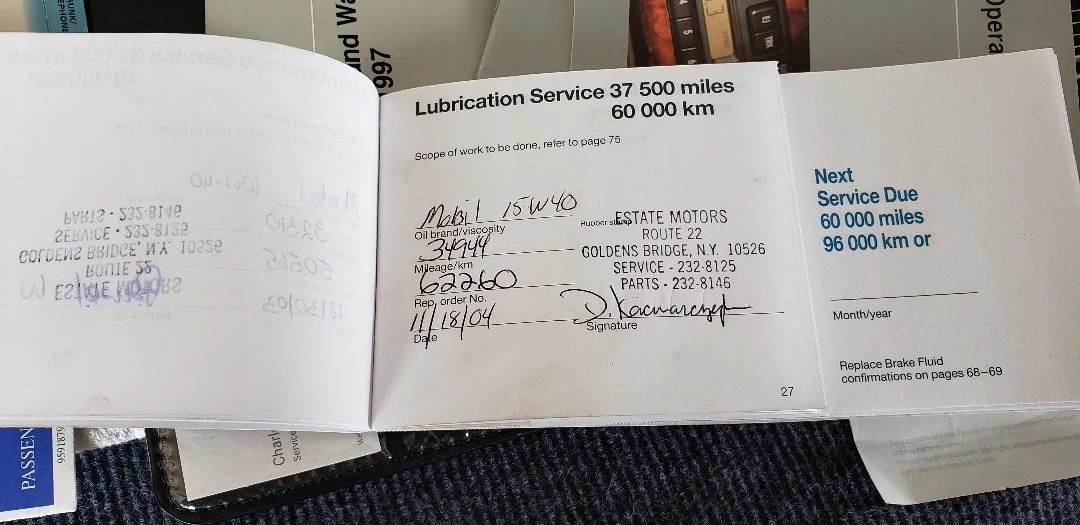 TRUNK/
und Wa
997
Opera
Lubrication Service 37 500 miles
60 000 km
Scope of work to be done, refer to page 75
Mobil 15W40
Oil brand/viscosity
34944
Mileage/km
62260
Rep. order No.
11/18/04
Date
Rubber stamp
ESTATE MOTORS
ROUTE 22
GOLDENS BRIDGE, N.Y. 10526
SERVICE - 232-8125
PARTS - 232-8146
Signature
27
Next
Service Due
60 000 miles
96 000 km or
Month/year
Replace Brake Fluid
confirmations on pages 68–69
PARTS - 232-8146
SERVICE - 232-8125
GOLDENS BRIDGE, N.Y. 10526
ROUTE 22
ESTATE MOTORS
PASSEN
9591879
Charl
Service